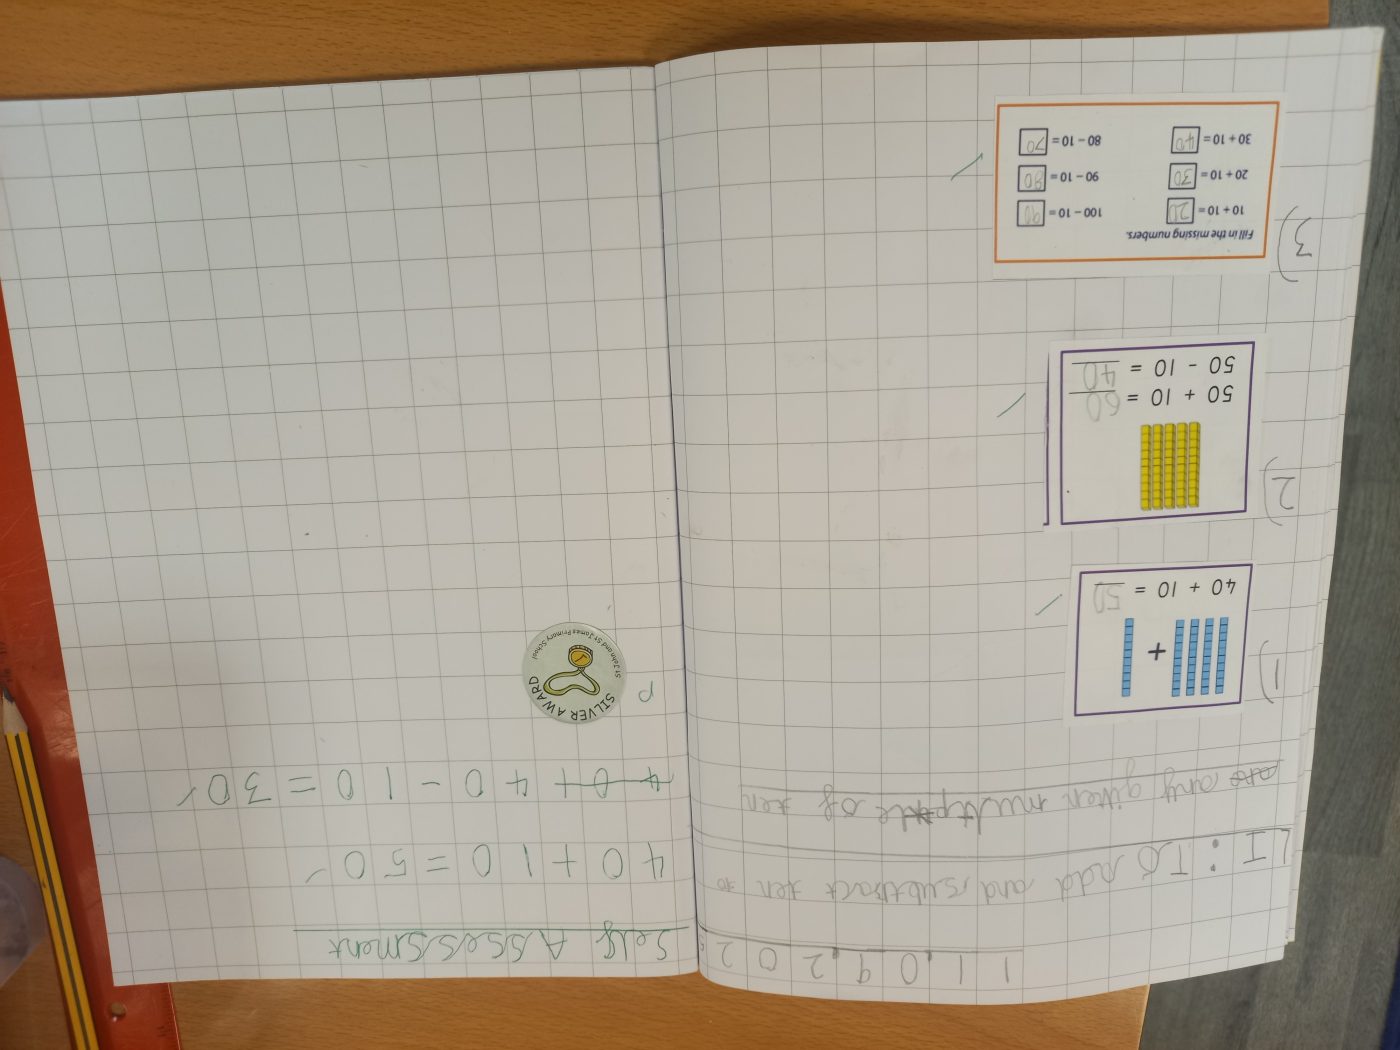 11.09.2025
LI: To Add and subtract ten to
any given multiple of ten
1)
40 + 10 = 50
2)
50 + 10 = 60
50 - 10 = 40
3)
Fill in the missing numbers.
10 + 10 = 20 100 - 10 = 90
20 + 10 = 30 90 - 10 = 80
30 + 10 = 40 80 - 10 = 70
Self Assessment
40+10=50
40+ 40-10=30
P
SILVER AWARD
St John and St James Primary School